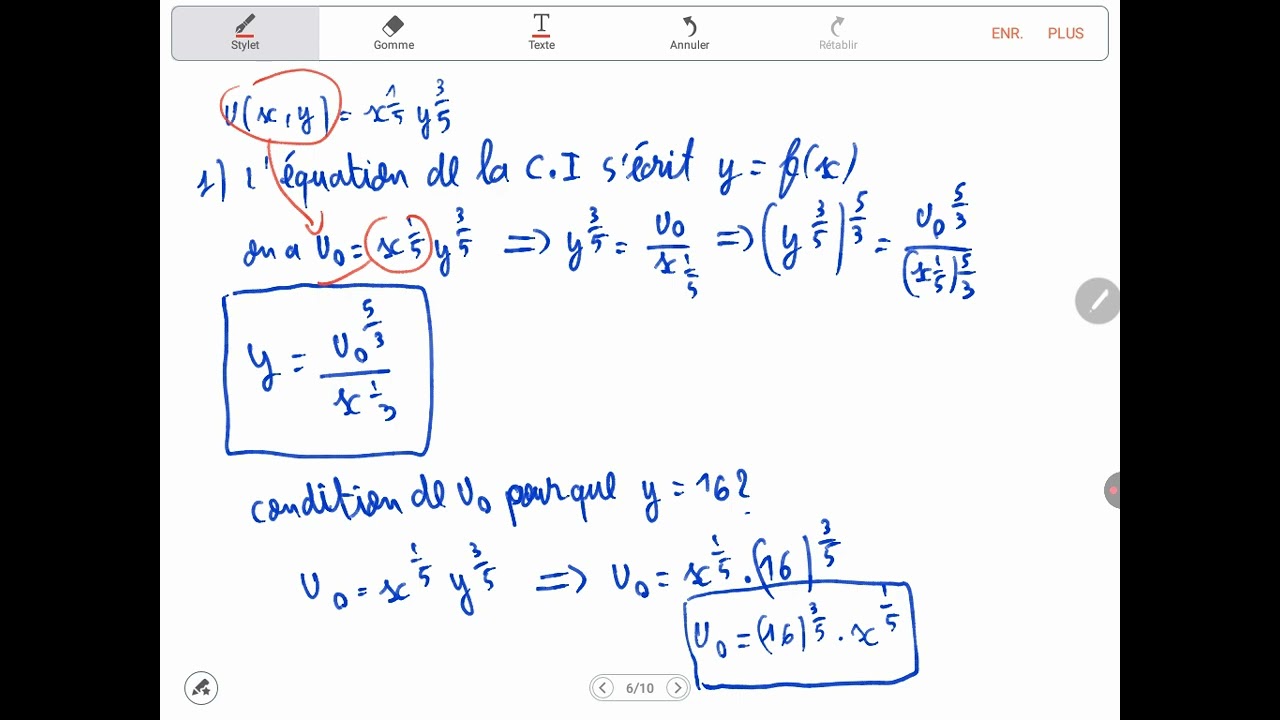 Stylet Gomme Texte Annuler Rétablir ENR. PLUS
U(x, y) = x^{1/5} y^{3/5}
1) L'équation de la C.I s'écrit y = f(x)
on a U₀ = x^{1/5} y^{3/5} => y^{3/5} = U₀ / x^{1/5} => (y^{3/5})^{5/3} = U₀^{5/3} / (x^{1/5})^{5/3}
y = U₀^{5/3} / x^{1/3}
condition de U₀ pour que y = 16?
U₀ = x^{1/5} y^{3/5} => U₀ = x^{1/5} . (16)^{3/5}
U₀ = (16)^{3/5} . x^{1/5}
6/10